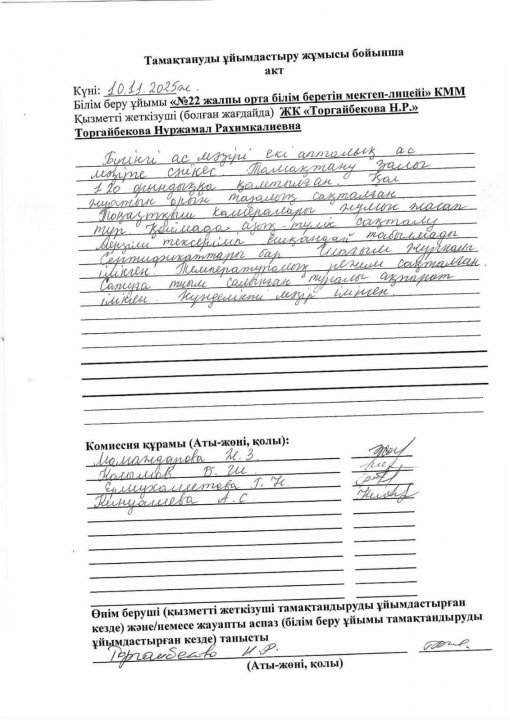 Тамақтануды ұйымдастыру жұмысы бойынша
акт
Күні: 10.11.2025ж.
Білім беру ұйымы «№22 жалпы орта білім беретін мектеп-лицейі» КММ
Қызметті жеткізуші (болған жағдайда) ЖК «Торгайбекова Н.Р.»
Торгайбекова Нуржамал Рахимкалиевна
Бүгінгі ас мәзірі екі апталық ас
мәзіріне сәйкес. Тамақтану залы
120 орындыққа қамтылған. Қол
жуатын орын тазалық сақталған.
Тоңазтқыш камералары жұмыс жасап
тұр. Қоймада азық-түлік сақталу
мерзімі
табылмады
Сертификаттары бар. Шағым журналы
ілінген. Температуралық режим сақталған.
Сатуға тыйым салынған туралы ақпарат
ілінген. Күнделікті мәзір ілінген.
Комиссия құрамы (Аты-жөні, қолы):
Мамандарова Н. З
Б. Ш.
Ермухаметова Г. Н.
А. С.
Өнім беруші (қызметті жеткізуші тамақтандыруды ұйымдастырған
кезде) және/немесе жауапты аспаз (білім беру ұйымы тамақтандыруды
ұйымдастырған кезде) танысты
Торгайбекова Н.Р.
(Аты-жөні, қолы)